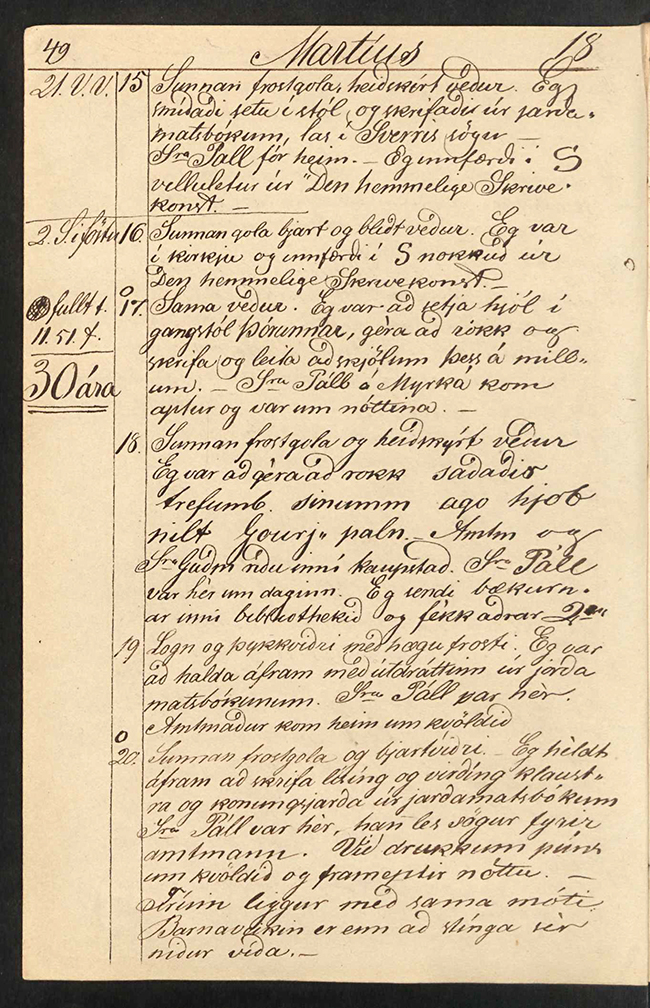 49 Martíus 18
21. V.V. 15 Sunnan frostgola, heidskírt vedur. Eg
smídadi setu í stól, og skrifadi úr jarda-
matsbókum, las í Sverris sögu —
Sra Páll fór heim. — Eg innfærdi í S
velluletur úr "Den hemmelige Skrive-
konst. —
2. S. í föstu 16. Sunnan gola bjart og blídt vedur. Eg var
í kirkju og innfærdi í S nokkud úr
Den hemmelige Skrivekonst. —
fullt t. 17. Sama vedur. Eg var ad setja hjól í
11.51 f. gangstól Þórunnar, géra ad rokk og
skrifa og leita ad skjölum þess á mill-
30 ára um. — Sra Páll á Myrká kom
aptur og var um nóttina. —
18. Sunnan frostgola og heidskýrt vedur
Eg var ad géra ad rokk sadadis
trefumb. sinumm ago hjob
nilt Gourj- paln. — Amtm og
Sra Gudm ridu inní kaupstad. Sra Páll
var hér um daginn. Eg sendi bækurn-
ar inní bibliothekid og fékk adrar
19 Logn og þykkvidri med hægu frosti. Eg var
ad halda áfram med útdráttinn úr jarda
matsbókunum. Sra Páll var hér.
Amtmadur kom heim um kvöldid
20. Sunnan frostgola og bjartvidri. — Eg hèldt
áfram ad skrifa lísíng og virdíng klaust-
ra og konungsjarda úr jardamatsbókum
Sra Páll var hèr, han les sögur fyrir
amtmann. Vid drukkum púns
um kvöldid og frameptir nóttu. —
Frúin liggur med sama móti.
Barnaveikin er enn ad stínga sèr
nidur vída. —